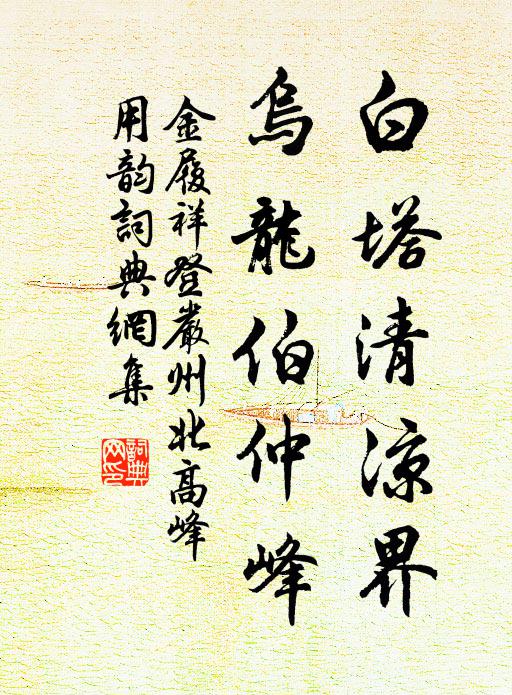 白塔清凉界
烏龍伯仲峰
金履祥登嚴州北高峰
用韵詞典網集
詞典
网印